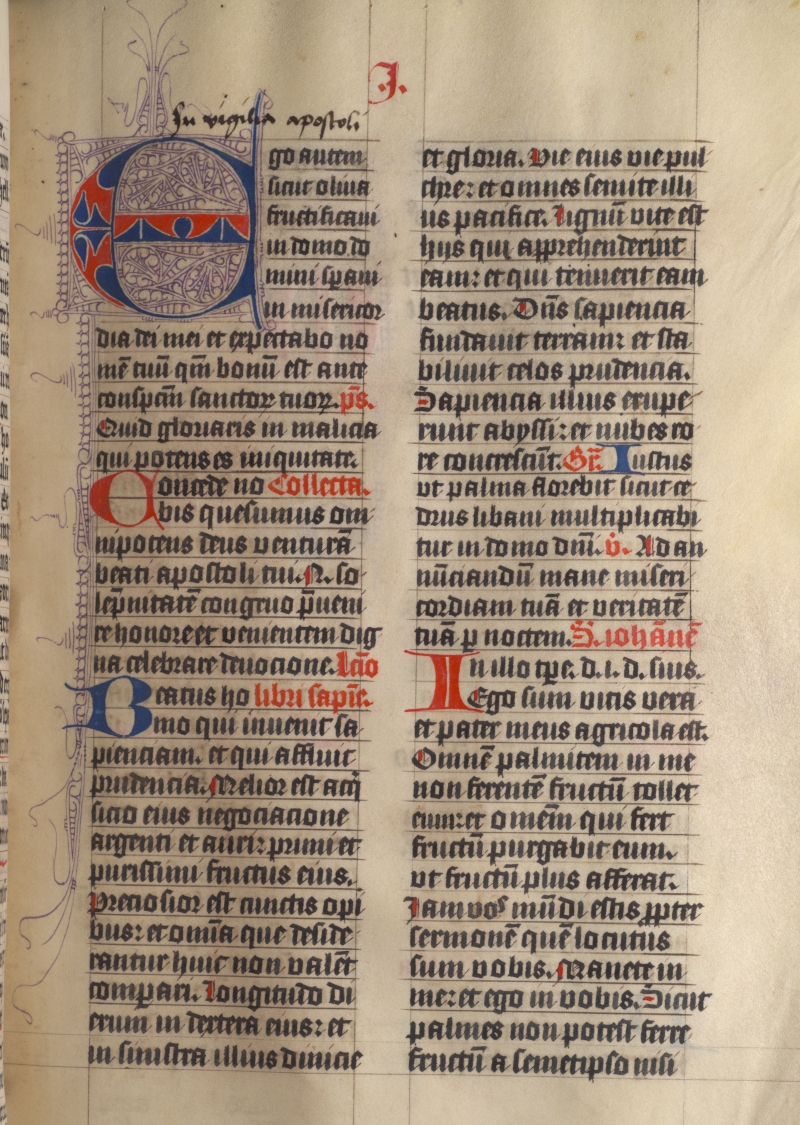 .I.
In vigilia apostoli
Ego autem
sicut oliua
fructificaui
in domo do
mini speraui
in misericor
dia dei mei et expectabo no
mē tuū qm̄ bonū est ante
conspc̄m sanctoꝝ tuoꝝ. ps̄.
Quid gloriaris in malicia
qui potens es iniquitate.
Concede no Collecta.
bis quesumus om
nipotens deus venturā
beati apostoli tui .N. so
lep̄nitatē congruo p̄ueni
re honore et venientem dig
na celebrare deuocione. Lc̄o
Beatus ho libri sapiē.
mo qui inuenit sa
pienciam. et qui affluit
prudencia. Melior est acq̄
sicio eius negociacione
argenti et auri: primi et
purissimi fructus eius.
Preciosior est cunctis opi
bus: et om̄ia que deside
rantur huic non valēt
compari. Longitudo di
erum in dextera eius: et
in sinistra illius diuicie
et gloria. Vie eius vie pul
chre: et omnes semite illi
us pacifice. Lignū vite est
hijs qui apprehenderint
eam: et qui tenuerit eam
beatus. Dn̄s sapiencia
fundauit terram: et sta
biliuit celos prudencia.
Sapiencia illius erupe
runt abyssi: et nubes ro
re concrescūt. Gr̄. Iustus
vt palma florebit sicut ce
drus libani multiplicabi
tur in domo dn̄i. v̄. Ad an
nūciandū mane miseri
cordiam tuā et veritatē
tuā ꝑ noctem. S. iohānē
In illo tꝑe. d. i. d. suis.
Ego sum vitis vera
et pater meus agricola est.
Omnē palmitem in me
non ferentē fructū tollet
eum: et omēm qui fert
fructū purgabit eum.
vt fructū plus afferat.
Iam vos mūdi estis ꝓpter
sermonē quē locutus
sum vobis. Manete in
me: et ego in vobis. Sicut
palmes non potest ferre
fructū a semetipso nisi